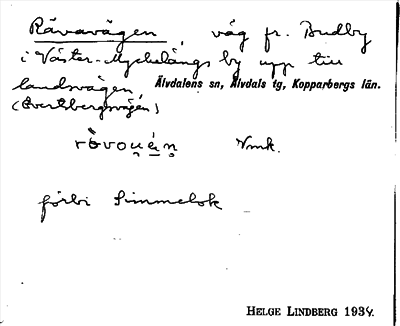 Rävavägen, väg fr. Budby
i Väster-Myckelängs by upp till
landsvägen,
Älvdalens sn, Älvdals tg, Kopparbergs län.
(Evertsbergsvägen)
Vmk.
förbi Simmelok
HELGE LINDBERG 1934.